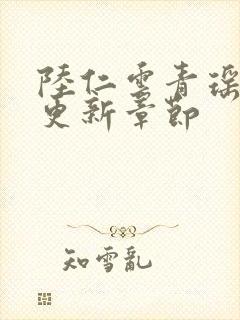 陸仁雲青瑶
更新章節
知雪亂